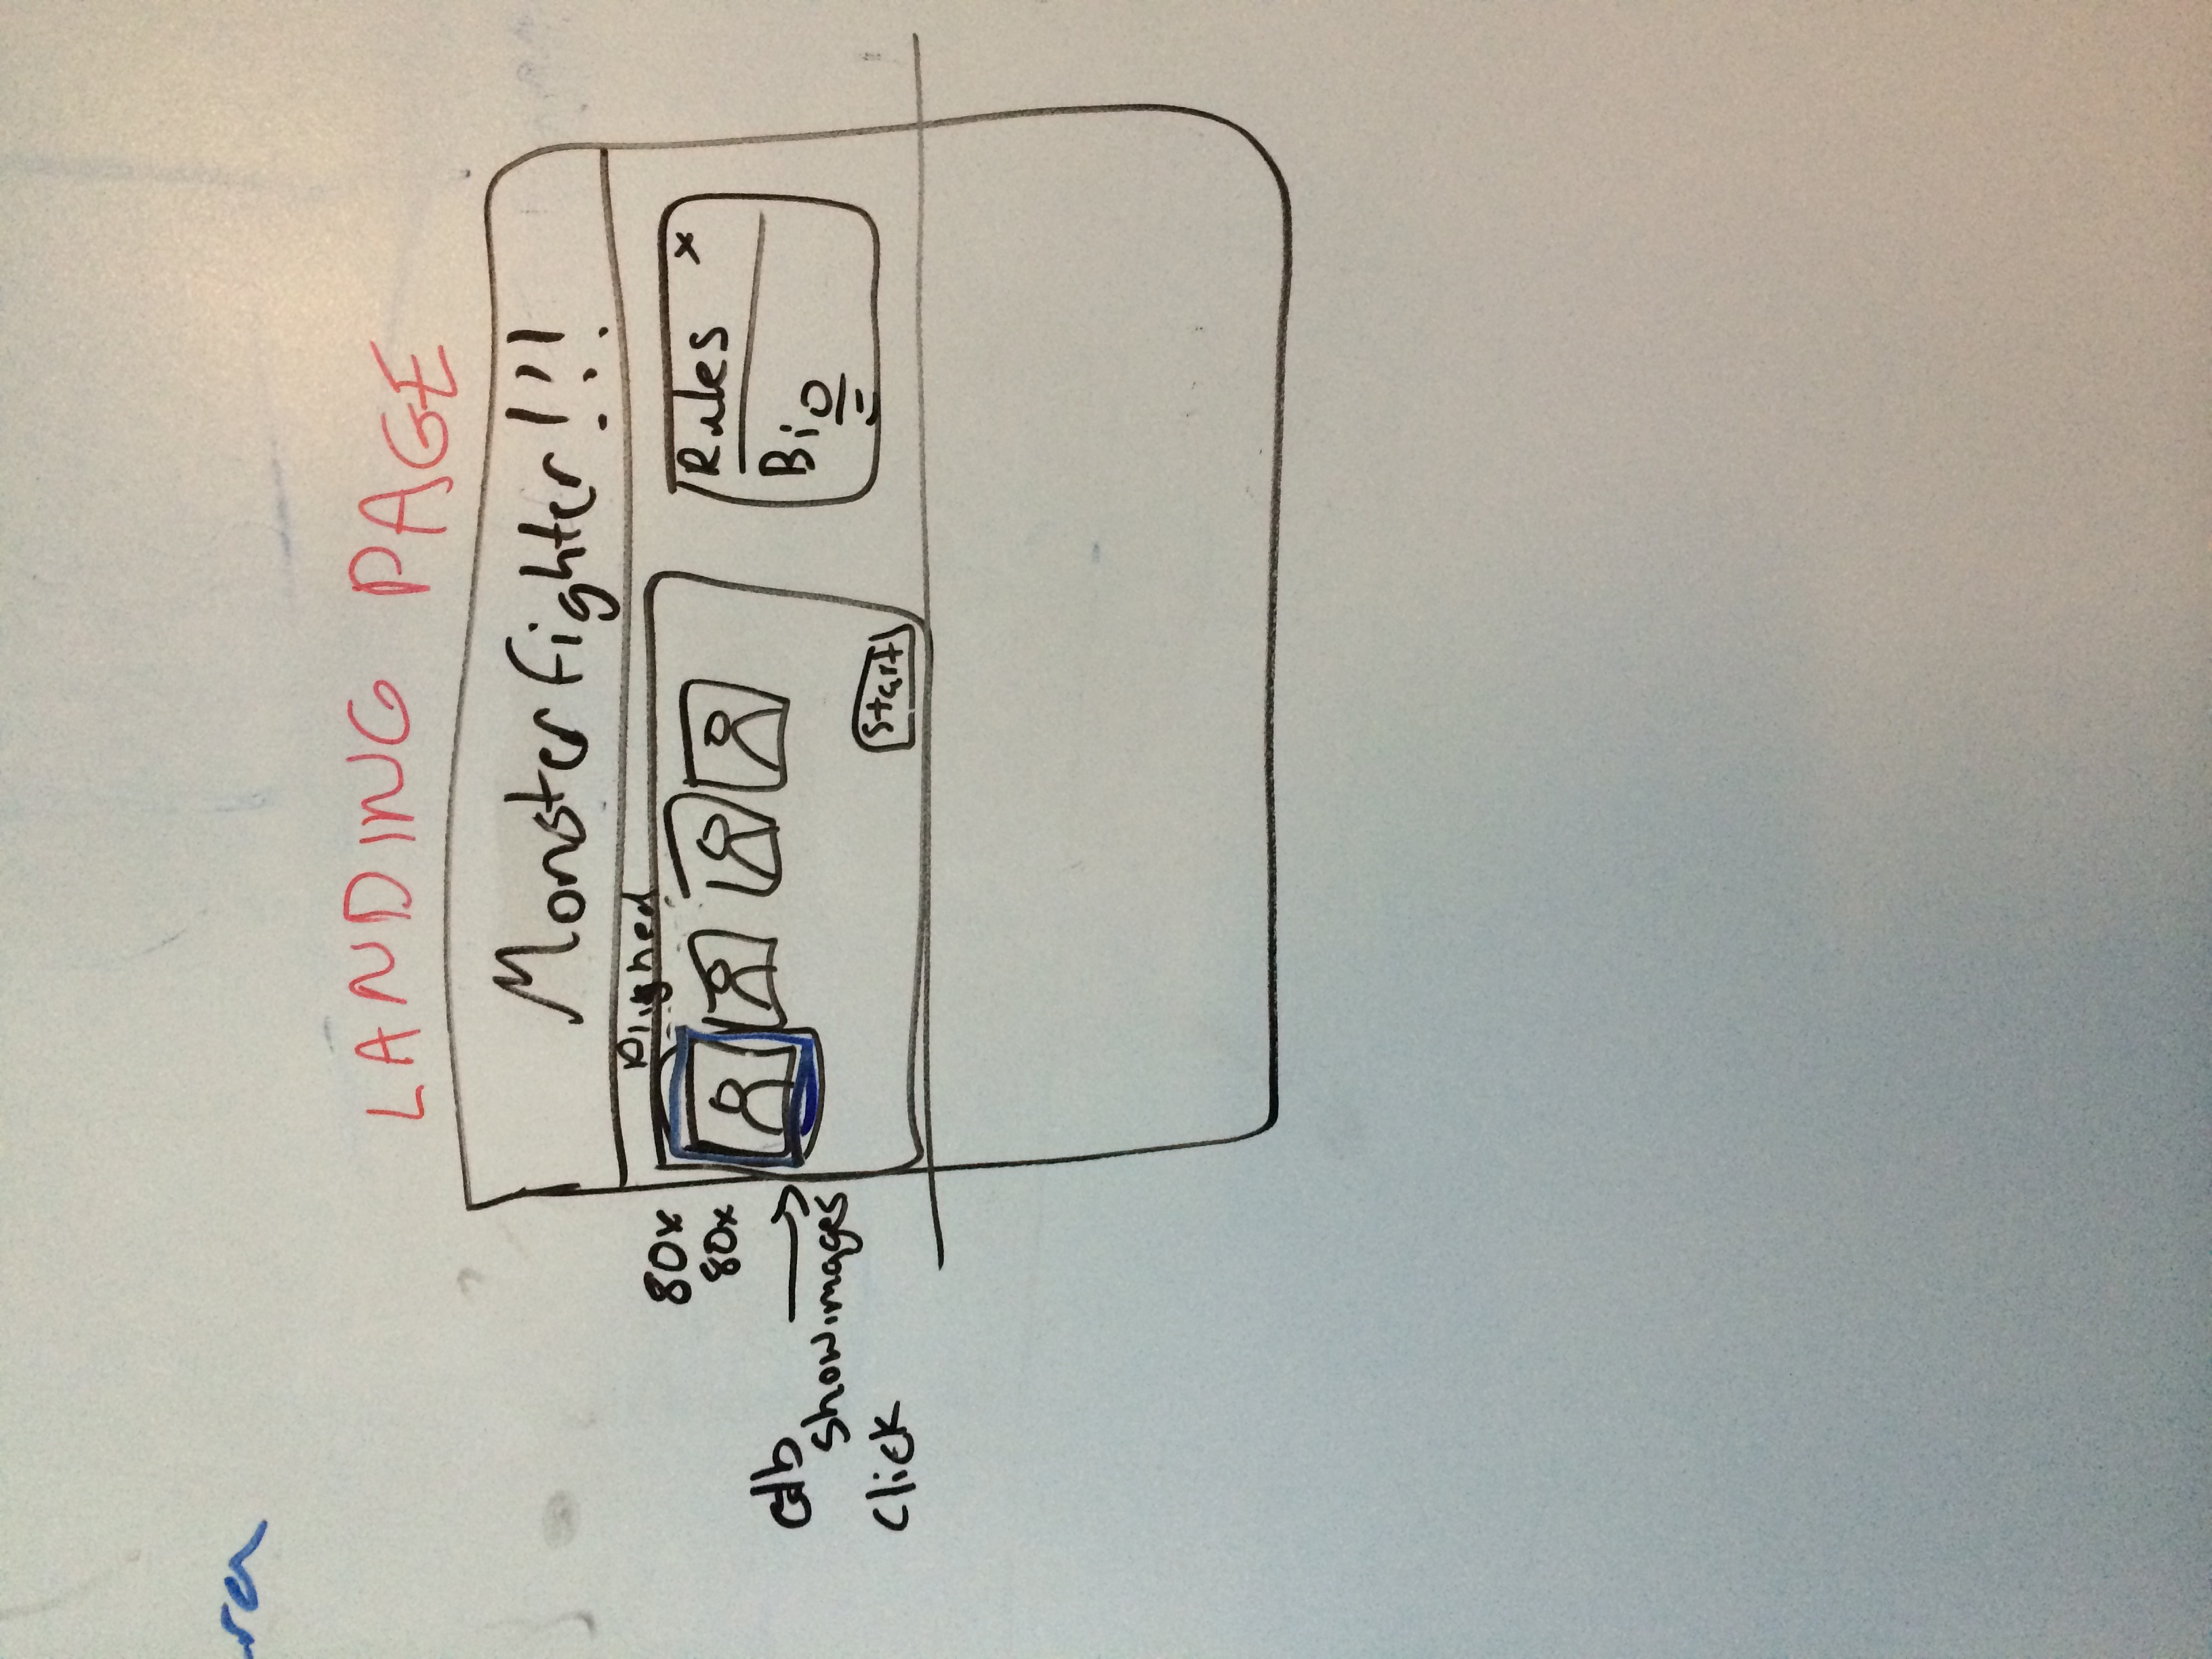 ra
LANDING PAGE
Monster fighter!!!
Aligned
80x
80x
db
show images
click
Rules x
Bio
Start